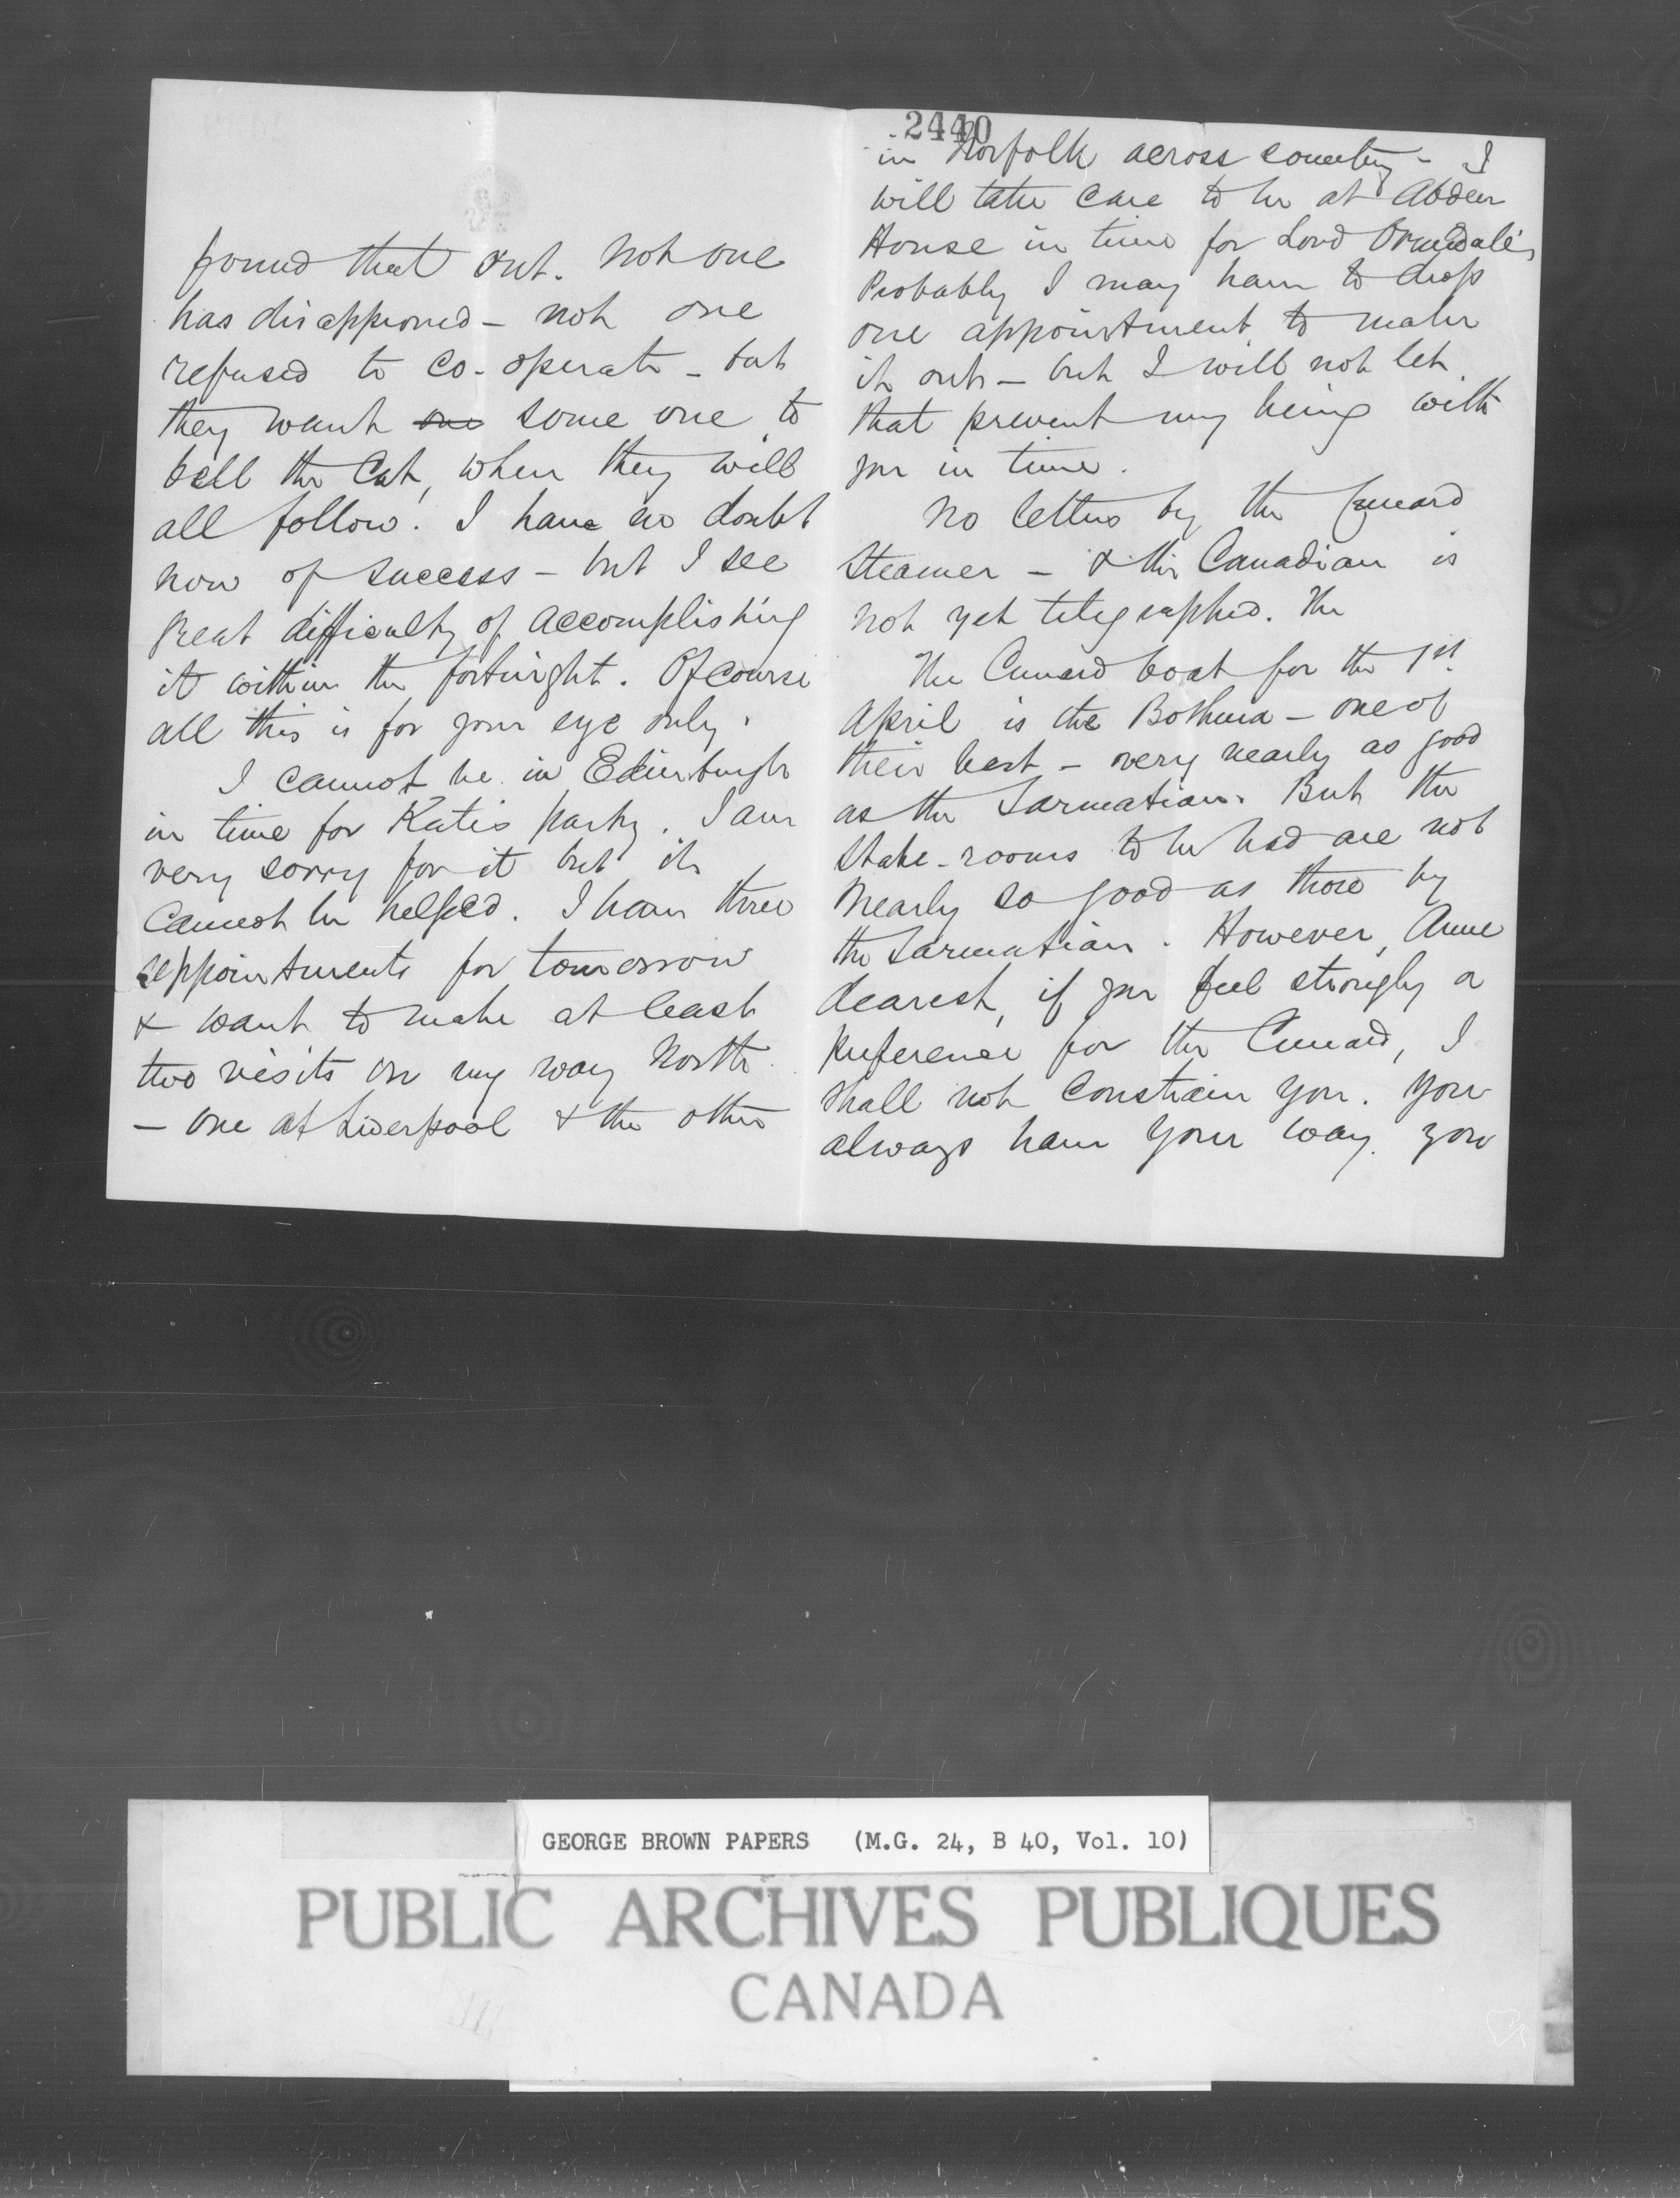 found that out. Not one
has disapproved - not one
refused to co-operate - but
they want one some one to
bell the Cat, when they will
all follow. I have no doubt
now of success - but I see
great difficulty of accomplishing
it within the fortnight. Of course
all this is for your eye only.
I cannot be in Edinburgh
in time for Katie's party. I am
very sorry for it but it
cannot be helped. I have three
appointments for tomorrow
& want to make at least
two visits on my way North
- one at Liverpool & the other
2440
in Norfolk across country - I
will take care to be at
House in time for Lord Ormidale's
Probably I may have to drop
one appointment to make
it out - but I will not let
that prevent my being with
you in time.
No letters by the Cunard
Steamer - & the Canadian is
not yet telegraphed. The
The Cunard boat for the 1st
April is the Bothnia - one of
their best - very nearly as good
as the Sarmatian. But the
State-rooms to be had are not
nearly so good as those by
the Sarmatian. However, Anne
dearest, if you feel strongly a
preference for the Cunard, I
shall not constrain you. You
always have your way. You
GEORGE BROWN PAPERS (M.G. 24, B 40, Vol. 10)
PUBLIC ARCHIVES PUBLIQUES
CANADA